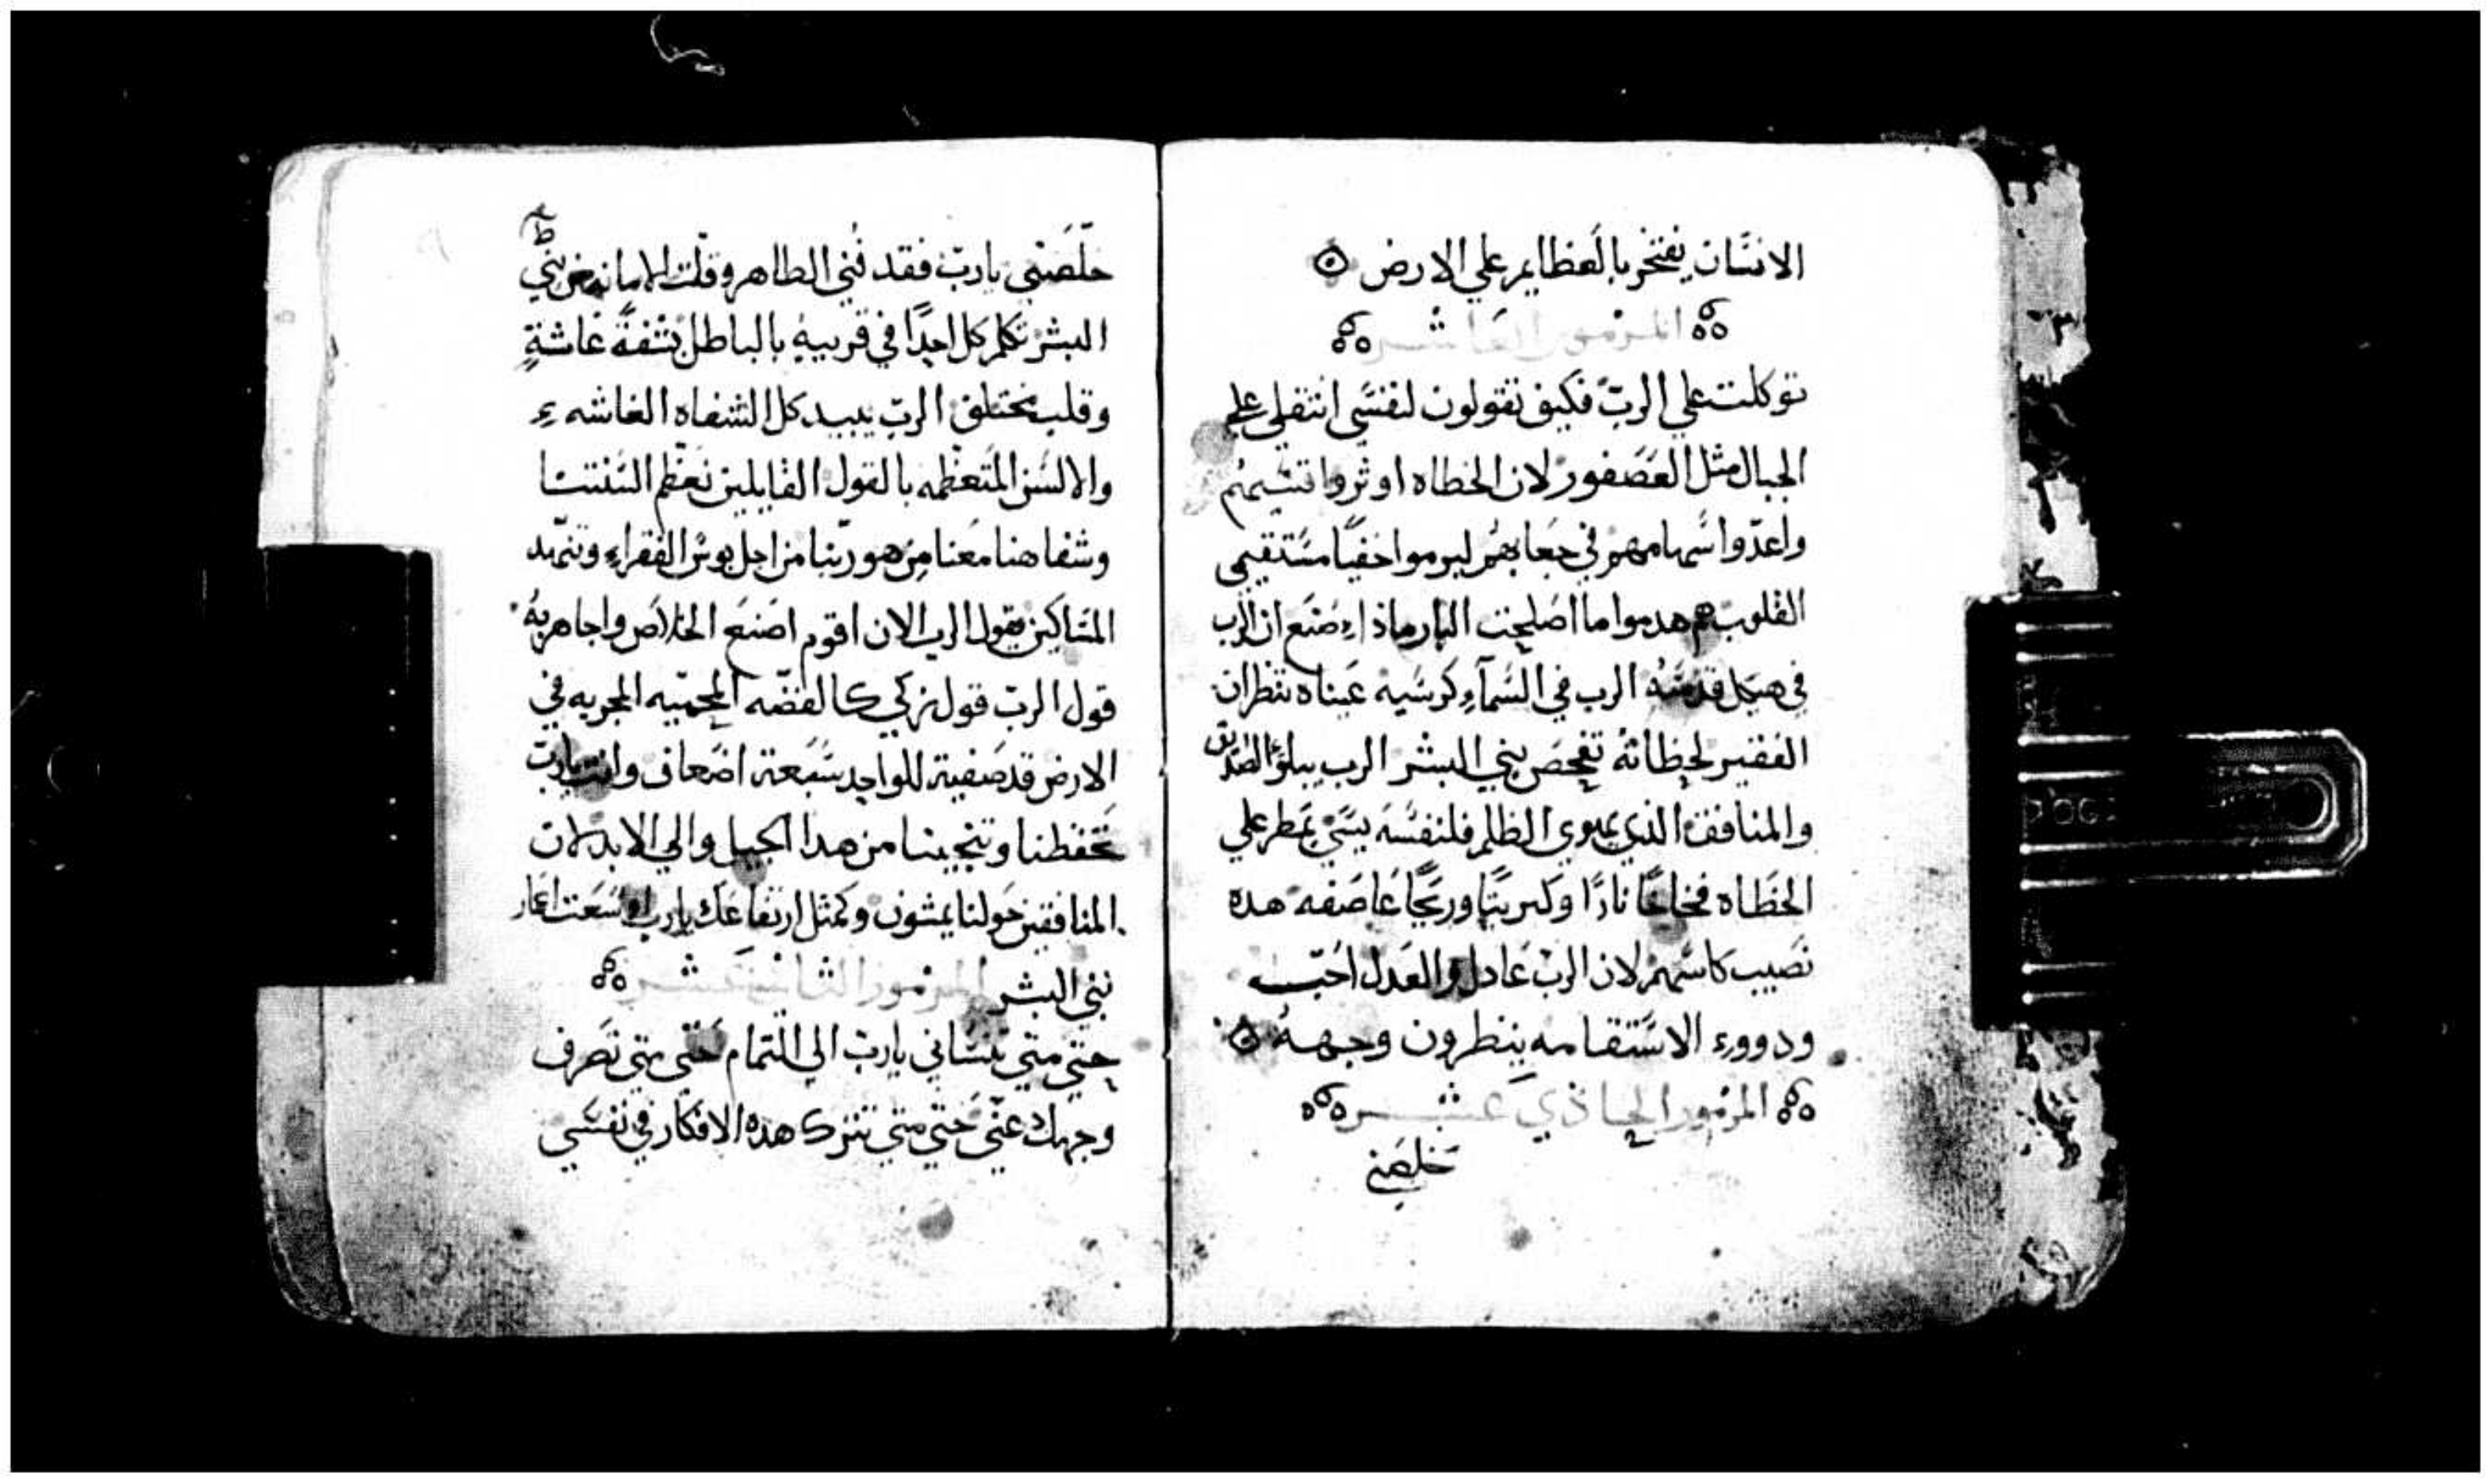 الانسَان يفتخر بالعَظايم علي الارض
المزمور العَاشر
توكلت علي الربّ فكيف تقولون لنفسَي انتقلي علي
الجبال مثل العصَفور لان الخطاه اوثروا قسَيهُم
واعدّوا سَهامهم في جعَابهم ليرموا خفيًا مسَتقيمي
القلوب هم هدموا ما اصَلحت البار ماذا صَنعَ ان الرب
في هيكل قدسَهُ الرب في السَمآءِ كرسَيه عَيناه تنظران
الفقير لحظاتهُ تفحصَ بني البشر الرب يبلوُ الصَدّيق
والمنافق الذي يهوي الظلم فلنفسَه يسَي يمَطر علي
الخطَاه فخاخًا نارًا وكبريتًا وريحًا عَاصَفه هده
نصَيب كاسَهم لان الربّ عَادل والعَدل احَبّ
ودووء الاسَتقامه ينظرون وجههُ
المزمور الحادي عَشر
خلصَني
خلّصَني يا ربّ فقد فُني الطاهر وقلّت الامانه من بني
البشر تكلم كل احدًا في قريبهِ بالباطل بشفةً غاشةٍ
وقلب مختلف الربّ يبيد كل الشفاه الغاشه
والالسَن المتَعظمه بالقول القايلين نعَظم السَنتنا
وشفاهنا معَنا مِن هو ربّنا من اجل بوس الفقراءِ وتنهّد
المسَاكين يقول الرب الان اقوم اصَنعَ الخلاصَ واجاهر بهُ
قول الربّ قول زكي كالفضّه المحميّه المجربه في
الارض قد صَفيت للواحد سَبعَة اضعَاف وانت يا ربّ
تحَفظنا وتنجينا من هدا الجيل والي الابد لان
المنافقين حَولنا يمشون وكمثل ارتفاعَك يا رب اوسَعَت اعَمار
بني البشر المزمور الثاني عَشر
حتي متي تنسَاني يا ربّ الي التمام حَتي متي تصَرف
وجهك عَني حَتي متي تترك هده الافكار في نفسَي